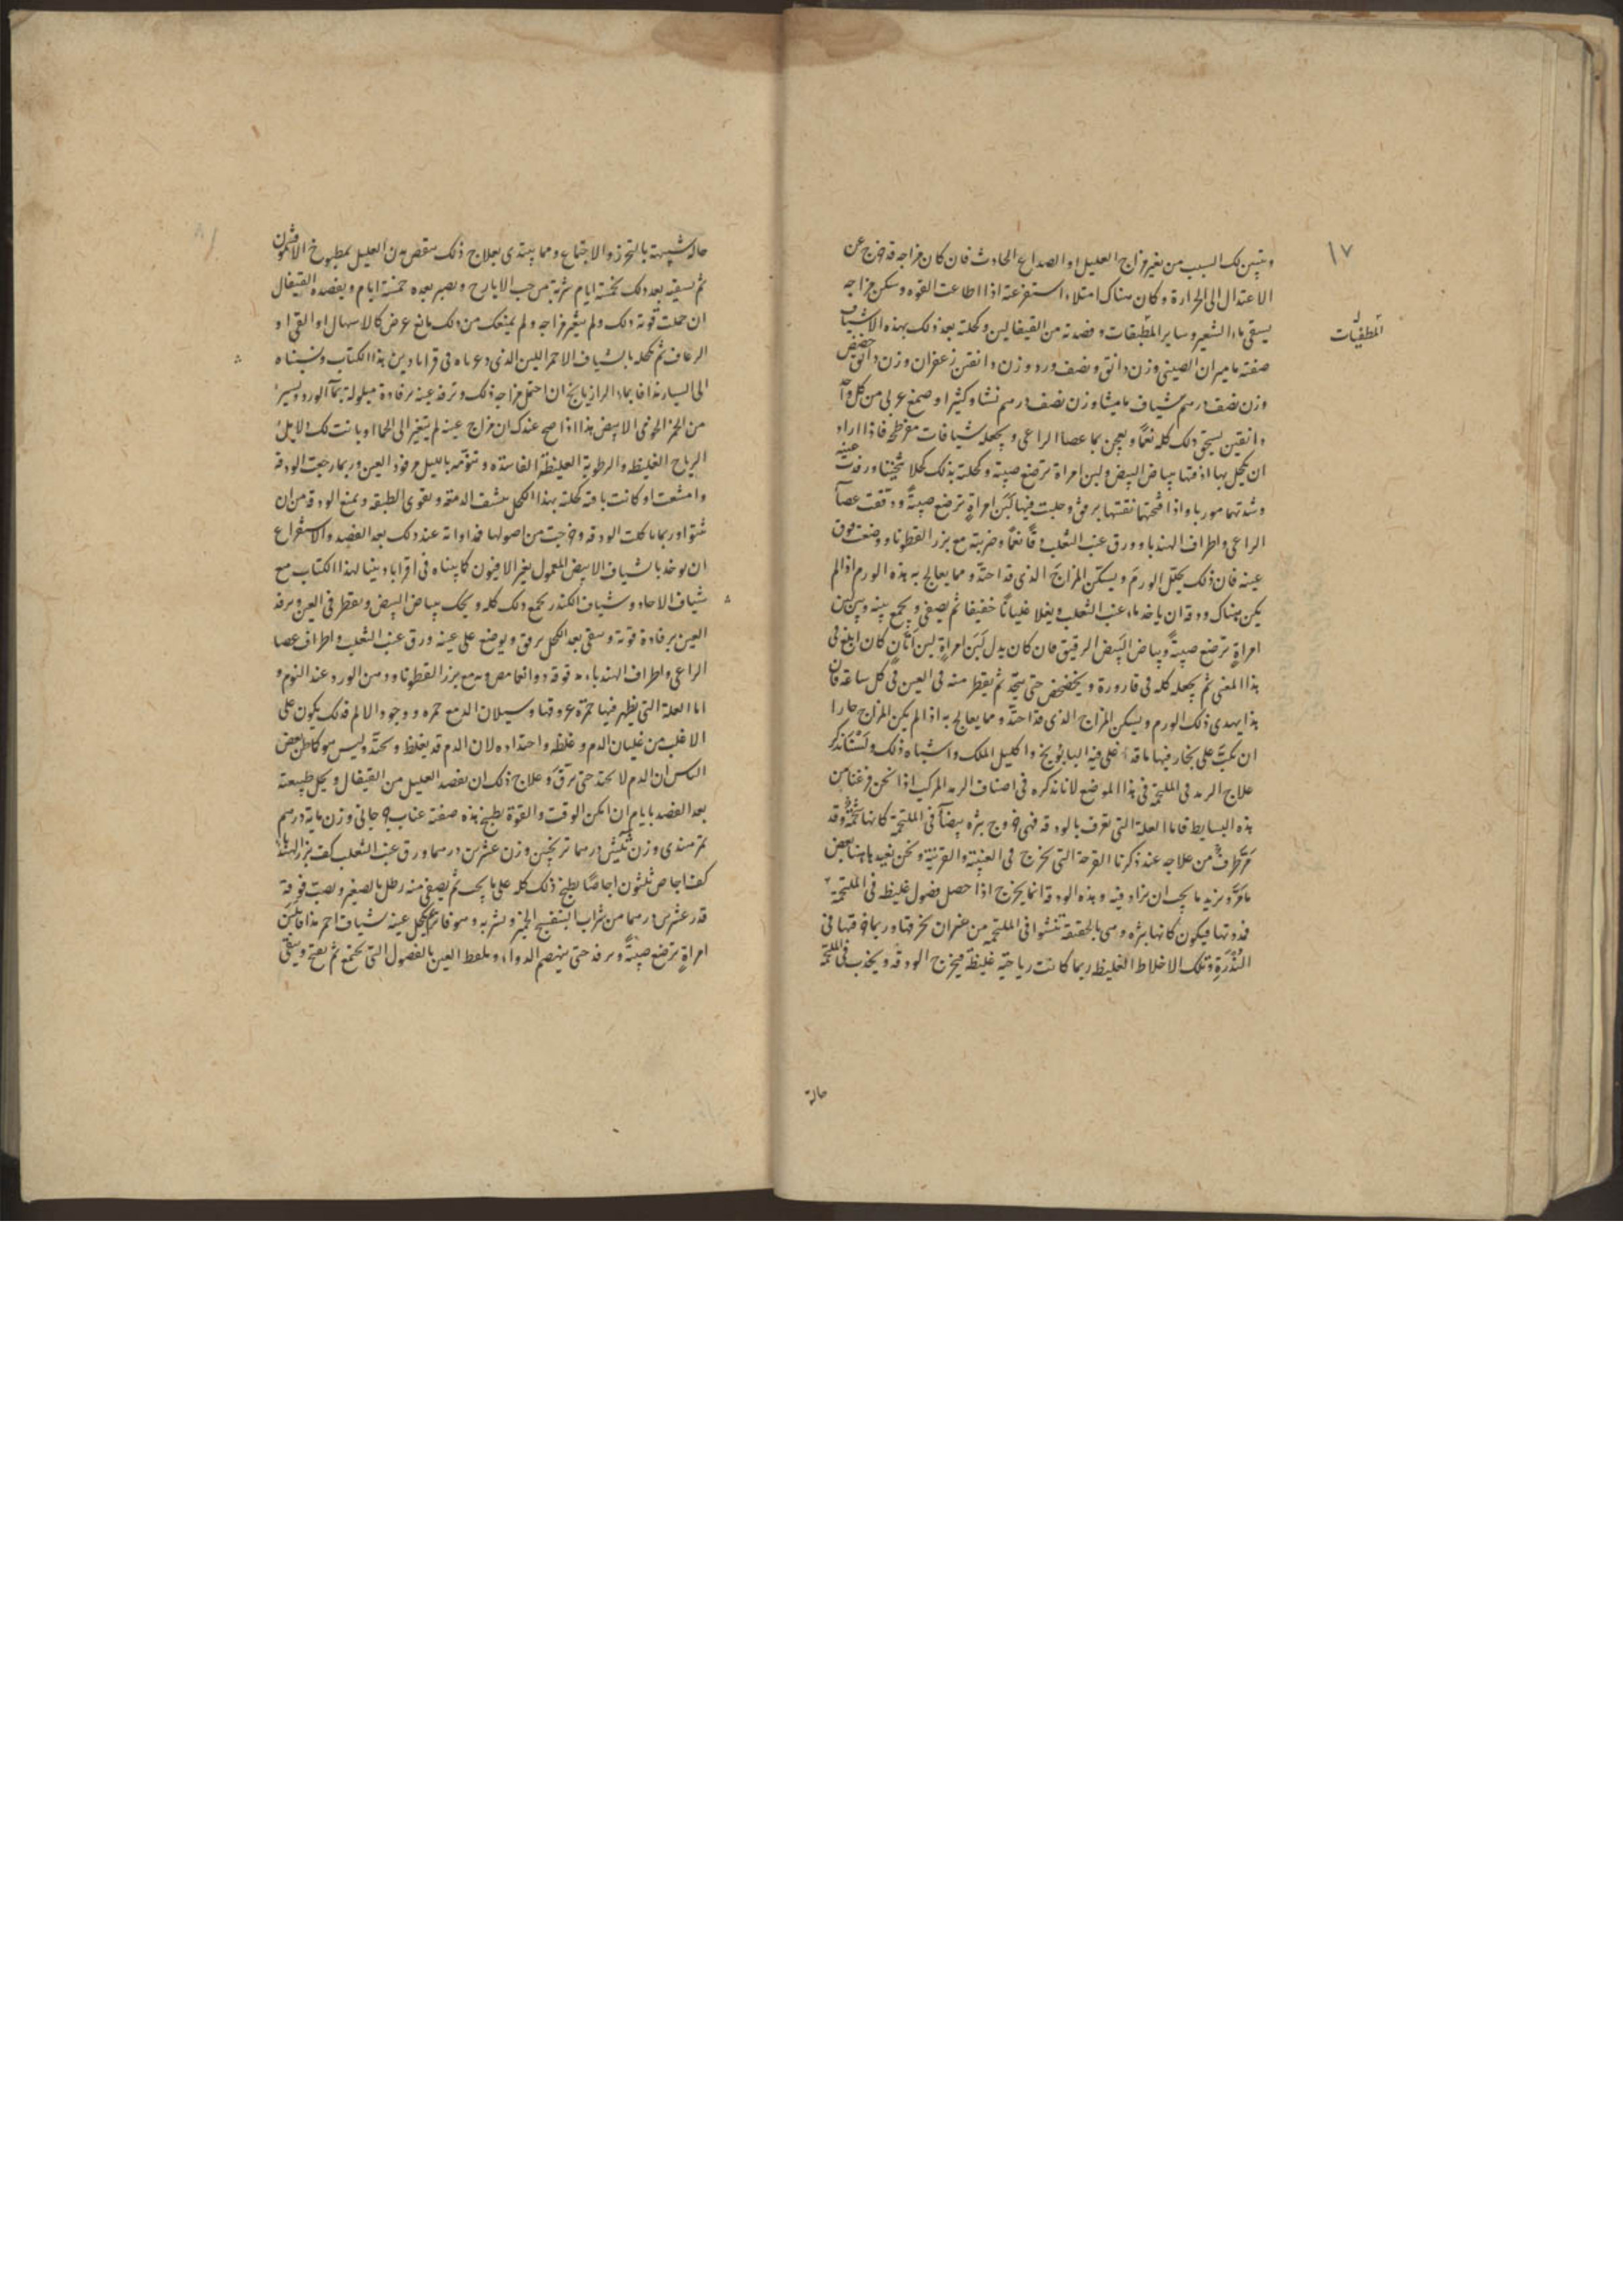 ١٧
ويتبين لك السبب من تغير مزاج العليل او الصداع الحادث فان كان مزاجه قد خرج عن
الاعتدال الى الحرارة وكان هناك امتلاء استفرغته اذا اطاعت القوه وسكن مزاجه
يسقى ماء الشعير وساير المطبقات وفصدته من القيفالين وكحلته بعد ذلك بهذه الاشياف
المطفيات
صفته ماميران الصينى وزن دانق ونصف ورد وزن دانقين زعفران وزن دانق حضض
وزن نصف درهم شياف ماميثا وزن نصف درهم نشا وكثيرا وصمغ عربى من كل واحد
دانقين يسحق ذلك كله نعمًا ويعجن بماء عصا الراعى ويجعله شيافات مفرطحة فاذا اراد
ان يكحل بها اذفتها ببياض البيض ولبن امراة ترضع صبية وكحلته بذلك كحلا ثخينا ورفدت عينه
وشدتها موربا واذا فتحتها نقتتها برفق وحلبت فيها لبن امراة ترضع صبيةً ودققت عصا
الراعى واطراف الهندبا وورق عنب الثعلب دقًا نعمًا وضربته مع بزر القطونا ووضعت فوق
عينه فان ذلك يحلل الورم ويسكن المزاج الذى قد احتدّ ومما يعالج به هذه الورم اذا لم
يكن هناك ودقه ان ياخذ ماء عنب الثعلب ويغلا غليانًا خفيفا ثم يصفى ويجمع بينه وبين لبن
امراةٍ ترضع صبيةً وبياض البيض الرقيق فان كان بدل لبن امراةٍ لبن اتانٍ كان ابلغ فى
هذا المعنى ثم يجعله كله فى قارورة ويخضخض حتى يتحد ثم يقطر منه فى العين فى كل ساعة فان
هذا يهدى ذلك الورم ويسكن المزاج الذى قد احتدّ ومما يعالج به اذا لم يكن المزاج حارا
ان يكبّ على بخار فيها ما قد اغلى فيه البابونج واكليل الملك واشباه ذلك ولسنا نذكر
علاج الرمد فى الملتحمة فى هذا الموضع لانا نذكره فى اصناف الرمد المركب اذا نحن فرغنا من
هذه البسايط فاما العلة التى تعرف بالودقه فهى خروج بثره بيضآ فى الملتحمة كانها شحمةٌ وقد
مرّ طرفٌ من علاجه عند ذكرنا القرحة التى تخرج فى العنبية والقرنية ونحن نعيد هاهنا بعض
ما مرّ ونزيد ما يجب ان يزاد فيه وهذه الودقة انما يخرج اذا حصل فضول غليظه فى الملتحمة
فيكون كانها بثره وهى بالحقيقة تنشوا فى الملتحمه من غير ان تخرقها وربما خرقتها فى
النُدْرَةِ وتلك الاخلاط الغليظه ربما كانت رياحيّه غليظة فيخرج الودقه ويجذب فى الملتحمة
حالة
حالة شبيهة بالتحرز والاجتماع ومما يبتدى بعلاج ذلك بنقض بدن العليل بمطبوخ الافتيمون
ثم يسقيه بعد ذلك بخمسة ايام شربة من حب الايارج ويصبر بعده خمسة ايام ويفصده القيفال
ان حملت قوته ذلك ولم يتغير مزاجه ولم يمنعك من ذلك مانع عرض كالاسهال او القى او
الرعاف ثم تكحله بالشياف الاحمر اللين الذى دعوناه فى قراباذين هذا الكتاب ونسبناه
الى اليسار مذافا بماء الرازيانج ان احتمل مزاجه ذلك وترفد عينه برفادة مبلولة بمآ الورد ويسير
من الخمر الابيض هذا اذا صح عندك ان مزاج عينه لم يتغير الى الحما او بانت لك دلايل
الرياح الغليظه والرطوبة الغليظة الفاسده وتنوّمه بالليل مرفود العين وربما رجعت الودقة
وامتنعت او كانت باقيه كحلته بهذا الكحل ينشف الدمعة ويقوى الطبقه ويمنع الودقه من ان
تنتوا وربما تاكلت الودقه وخرجت من اصولها فداواته عند ذلك بعد الفصد والاستفراغ
ان توخذ بالشياف الابيض المعمول بغير الافيون كما بيناه فى اقراباديننا لهذا الكتاب مع
شياف الاحاد وشياف الكندر يجمع ذلك كله ويحك ببياض البيض ويقطر فى العين ويرفد
العين برفادة قوية وينقى بعد الكحل برفق ويوضع على عينه ورق عنب الثعلب واطراف عصا
الراعى واطراف الهندباء مدقوقه مع بزر القطونا ودهن الورد عند النوم و
اما العلة التى يظهر فيها حمرة عروقها وسيلان الدمع حمره ووجود الالم فذلك يكون على
الاغلب من غليان الدم وغلظه واحتداده لان الدم قد يغلظ ويحتدّ وليس هو كما ظن بعض
الناس ان الدم لا يحتد حتى يرقّ وعلاج ذلك ان يفصد العليل من القيفال ويحل طبيعته
بعد الفصد بايام ان امكن الوقت والقوة بطبخ هذه صفته عناب جرجانى وزن ماية درهم
تمر هندى وزن ثلثين درهما ترنجبين وزن عشرين درهما ورق عنب الثعلب كف بزر الهندبا
كف اجاص ثلثون اجاصًا يطبخ ذلك كله على ما يجب ثم يصفى منه رطل بالصغير ويصب فوقه
قدر عشرين درهما من شراب البنفسج الخمير ويشربه وهو فاتر ثم يكحل عينه بشياف احمر مذاف بلبن
امراةٍ ترضع صبيةً ويرفد حتى ينهضم الدواء ويلفظ العين بالفضول التى تجتمع ثم يفتح وينقى